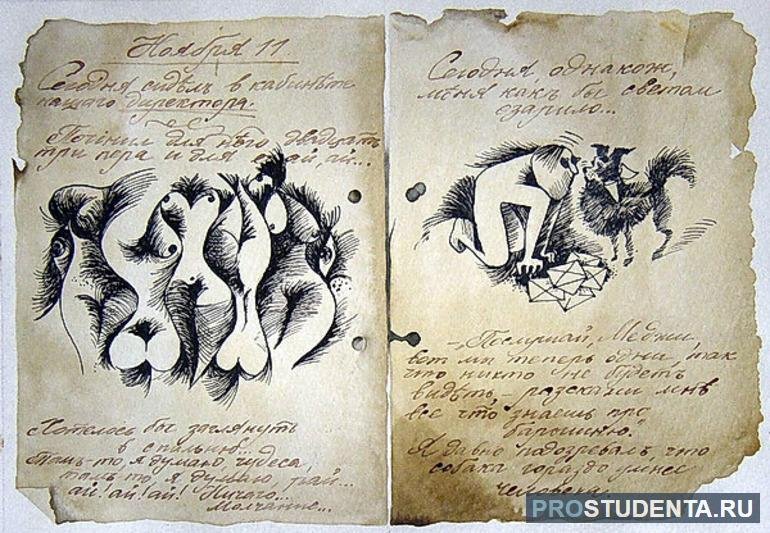 Ноября 11.
Сегодня сидѣлъ в кабинѣте
нашего директора.
Починил для него двадцать
три пера и для ай, ай...
Хотелось бы заглянуть
в спальню...
Тамъ-то, я думаю, чудеса,
тамъ-то, я думаю, рай...
ай! ай! ай! Ничего...
Молчание...
Сегодня, однакож,
меня какъ бы светом
озарило...
– „Послушай, Меджи,
вот мы теперь одни, так
что никто не будетъ
видѣть, – разскажи мнѣ
все что знаешь про
барышню".
Я давно подозревалъ, что
собака гораздо умнее
человека.
PROSTUDENTA.RU